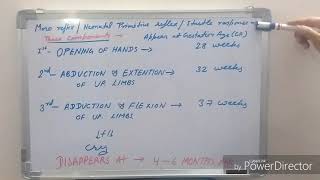 Moro reflex / Neonatal Primitive reflex / Startle response
Three Components → Appear at Gestation Age (GA)
1st - OPENING OF HANDS → 28 weeks
2nd - ABDUCTION & EXTENTION → 32 weeks
OF UP. LIMBS
3rd - ADDUCTION & FLEXION → 37 weeks
OF UP. LIMBS
↓f/b
Cry
DISAPPEARS AT → 4-6 MONTHS
by PowerDirector